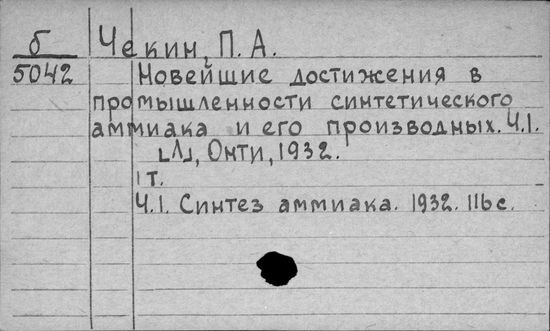 б Чекин, П. А.
5042 Новейшие достижения в
промышленности синтетического
аммиака и его производных. Ч.1.
[Л], Онти, 1932.
1 т.
Ч.1. Синтез аммиака. 1932. 116 с.